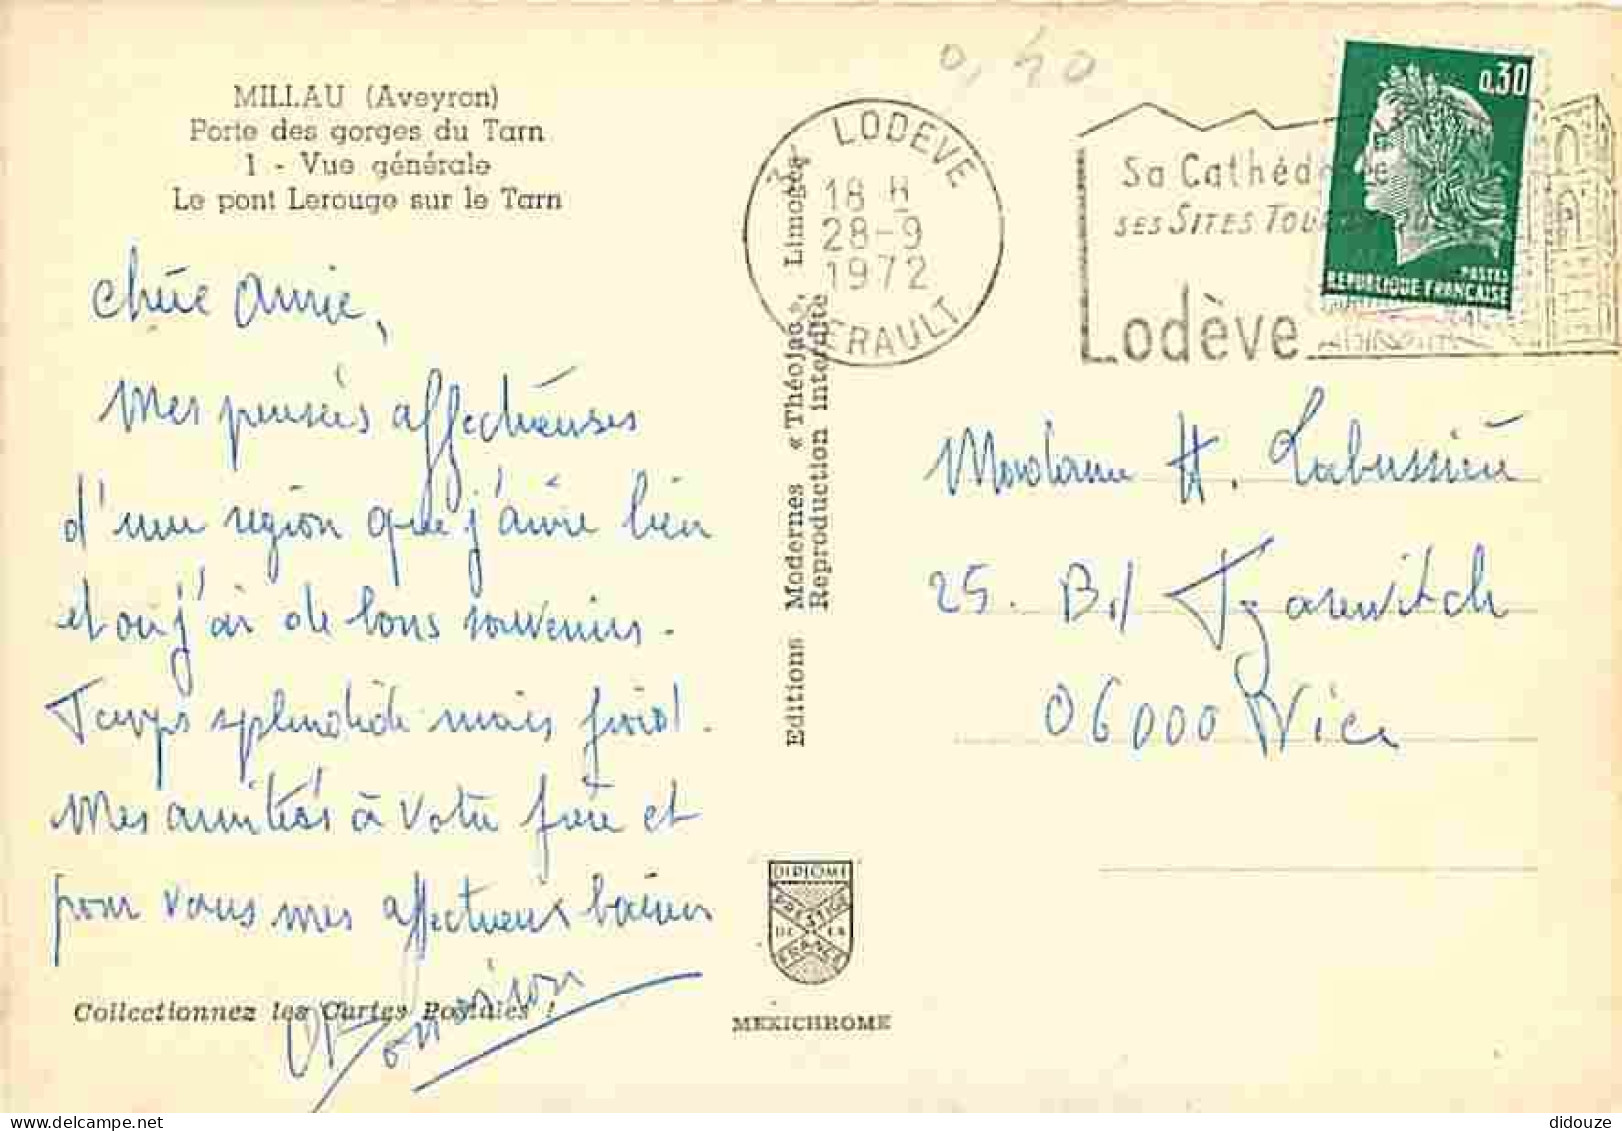 MILLAU (Aveyron)
Porte des gorges du Tarn
1 - Vue générale
Le pont Lerouge sur le Tarn
Chère Annie,
Mes pensées affectueuses
d'une région que j'aime bien
et où j'ai de bons souvenirs.
Temps splendide mais froid.
Mes amitiés à votre frère et
pour vous mes affectueux baisers
Collectionnez les Cartes Postales !
Editions Modernes « Théojac », Limoges
Reproduction interdite
DIPLOME
PRESTIGE
DE LA
FRANCE
MEXICHROME
0,40
LODEVE
18 H
28-9
1972
HERAULT
Sa Cathéd
SES SITES TOU
Lodève
0,30
POSTES
REPUBLIQUE FRANÇAISE
Madame H. Labussière
25. Bd Tzarewitch
06000 Nice
didouze